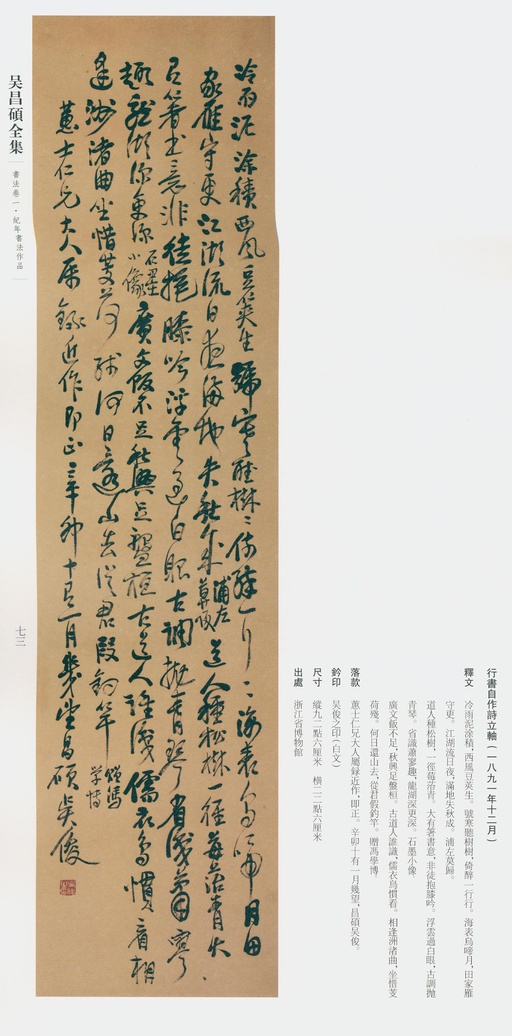 行書自作詩立軸(一八九一年十二月)
釋文 冷雨泥涂積,西風豆莢生。號寒聽樹樹,倚醉一行行。海表烏啼月,田家雁
守更。江湖流日夜,滿地失秋成。浦左莫歸。
道人種松樹,一徑莓苔青。大有著書意,非徒抱膝吟。浮雲過白眼,古調拋
青琴。省識蕭寥趣,龍湖深更深。石墨小像。
廣文飯不足,秋興足盤桓。古道人誰識,儒衣烏慣看。相逢洲渚曲,坐惜芰
荷殘。何日還山去,從君假釣竿。贈馮學博。
落款 蕙士仁兄大人屬録近作,即正。辛卯十有一月幾望,昌碩吴俊。
鈐印 吴俊之印(白文)
尺寸 縱九二點六厘米 橫二二點六厘米
出處 浙江省博物館
冷雨泥涂積西風豆莢生號寒聽樹〻倚醉一行〻海表烏啼月田
家雁守更江湖流日夜滿地失秋成浦左莫歸道人種松樹一徑莓苔青大
有著書意非徒抱膝吟浮雲過白眼古調拋青琴省識蕭寥
趣龍湖深更深石墨小像廣文飯不足秋興足盤桓古道人誰識儒衣烏慣看相
逢洲渚曲坐惜芰荷殘何日還山去從君假釣竿贈馮學博
蕙士仁兄大人屬録近作即正辛卯十有一月幾望昌碩吴俊
吴昌碩全集
書法卷一·紀年書法作品
七三